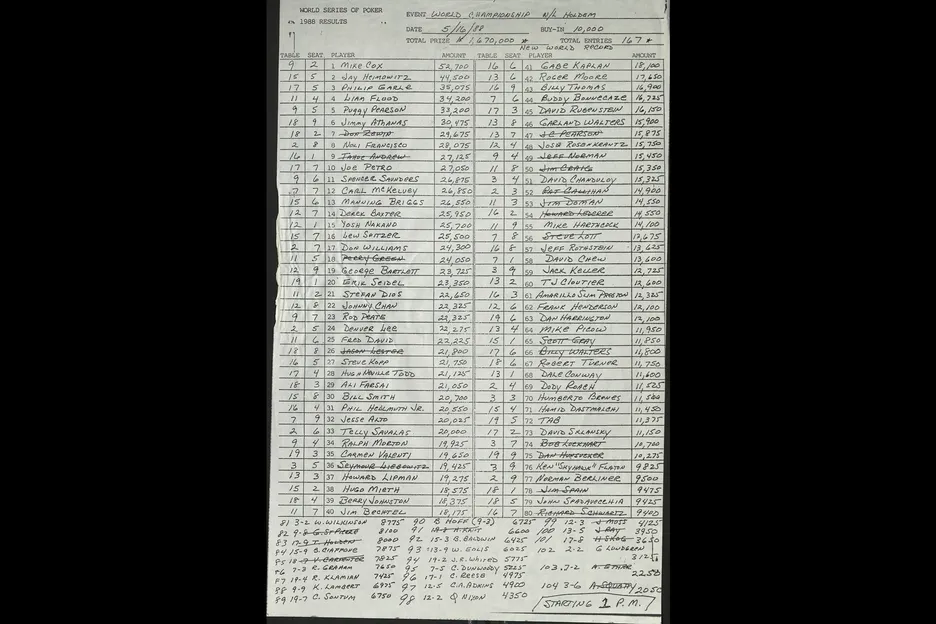 WORLD SERIES OF POKER
1988 RESULTS
EVENT WORLD CHAMPIONSHIP N/L HOLDEM
DATE 5/16/88 BUY-IN 10,000
TOTAL PRIZE $1,670,000 * TOTAL ENTRIES 167 *
NEW WORLD RECORD
TABLE SEAT PLAYER AMOUNT TABLE SEAT PLAYER AMOUNT
9 2 1 MIKE COX 52,700 16 6 41 GABE KAPLAN 18,100
15 5 2 JAY HEIMOWITZ 44,500 13 6 42 ROGER MOORE 17,650
17 5 3 PHILIP GARLE 35,075 16 9 43 BILLY THOMAS 16,900
11 4 4 LIAM FLOOD 34,200 7 6 44 BUDDY BONNECAZE 16,725
9 5 5 PUGGY PEARSON 33,200 17 3 45 DAVID RUBENSTEIN 16,150
18 9 6 JIMMY ATHANAS 30,475 13 8 46 GARLAND WALTERS 15,900
18 2 7 DON ZEWIN 29,675 13 7 47 J.C. PEARSON 15,875
2 8 8 NOLI FRANCISCO 28,075 12 4 48 JOSH ROSENKRANTZ 15,750
16 1 9 TAHOE ANDREW 27,125 9 4 49 JEFF NORMAN 15,450
17 7 10 JOE PETRO 27,050 11 8 50 JIM CRAIG 15,350
9 6 11 SPENCER SAUNDERS 26,875 3 4 51 DAVID CHANDULOY 15,325
7 7 12 CARL MCKELVEY 26,850 2 3 52 PAT CALLIHAN 14,900
15 6 13 MANNING BRIGGS 26,550 11 3 53 JIM DOMAN 14,550
12 7 14 DEREK BAXTER 25,950 16 2 54 HOWARD LEDERER 14,550
12 1 15 YOSH NAKANO 25,700 11 9 55 MIKE HARTHCOCK 14,100
15 7 16 LEW SPITZER 25,500 7 8 56 STEVE LOTT 13,675
2 7 17 DON WILLIAMS 24,300 16 8 57 JEFF ROTHSTEIN 13,625
11 5 18 PERRY GREEN 24,050 7 1 58 DAVID CHEW 13,600
12 9 19 GEORGE BARTLETT 23,725 3 9 59 JACK KELLER 12,725
19 1 20 ERIK SEIDEL 23,350 13 2 60 TJ CLOUTIER 12,600
11 2 21 STEFAN DIOS 22,650 16 3 61 AMARILLO SLIM PRESTON 12,325
12 8 22 JOHNNY CHAN 22,325 12 6 62 FRANK HENDERSON 12,100
9 7 23 ROD PEATE 22,325 19 6 63 DAN HARRINGTON 12,100
2 5 24 DENVER LEE 22,275 13 4 64 MIKE PICOW 11,950
11 6 25 FRED DAVID 22,225 15 1 65 SCOTT GRAY 11,850
18 8 26 JASON LESTER 21,800 17 6 66 BILLY WALTERS 11,800
16 5 27 STEVE KOPP 21,750 18 6 67 ROBERT TURNER 11,750
17 4 28 HUGH NEVILLE TODD 21,125 13 1 68 DALE CONWAY 11,600
18 3 29 ALI FARSAI 21,050 2 4 69 DODY ROACH 11,525
15 8 30 BILL SMITH 20,700 3 3 70 HUMBERTO BRENES 11,500
16 4 31 PHIL HELLMUTH JR. 20,550 15 4 71 HAMID DASTMALCHI 11,450
7 9 32 JESSE ALTO 20,025 19 5 72 TAB 11,375
2 6 33 TELLY SAVALAS 20,000 17 2 73 DAVID SKLANSKY 11,150
9 4 34 RALPH MORTON 19,925 3 7 74 BOB LOCKHART 10,700
19 3 35 CARMEN VALENTI 19,650 19 9 75 DAN HOFSOCKER 10,275
3 5 36 SEYMOUR LIEBOWITZ 19,425 3 9 76 KEN "SKYHAWK" FLATON 9825
13 3 37 HOWARD LIPMAN 19,275 2 9 77 NORMAN BERLINER 9500
15 2 38 HUGO MIETH 18,575 18 1 78 JIM SPAIN 9475
18 4 39 BERRY JOHNSTON 18,375 18 5 79 JOHN SPADAVECCHIA 9425
11 7 40 JIM BECHTEL 18,175 16 7 80 RICHARD SCHWARTZ 9400
81 3-2 W. WILKINSON 8775 90 B HOFF (9-3) 6725 99 12-3 J MOSS 4125
82 9-8 G. ST PIERRE 8100 91 H. KNT 6600 100 13-5 J. PAT 3950
83 17-9 T HOLDEN 8000 92 15-3 B. BALDWIN 6425 101 17-8 H SKOG 3650
84 15-9 B. CIAFFONE 7875 93 13-9 W. EOLIS 6025 102 2-2 G LUNDGREN 3125
85 V. CARPENTER 7825 94 19-2 J.E. WHITED 5775
86 7-3 R. GRAHAM 7650 95 7-5 C. DUNWOODY 5225 103 7-2 2250
87 19-4 R. KLAMIAN 7425 96 17-1 C. REESE 4975
88 9-9 K. LAMBERT 6975 97 12-5 C.A. ADKINS 4900 104 3-6 2050
89 19-7 C. SONTUM 6750 98 12-2 Q NIXON 4350
STARTING 1 P.M.